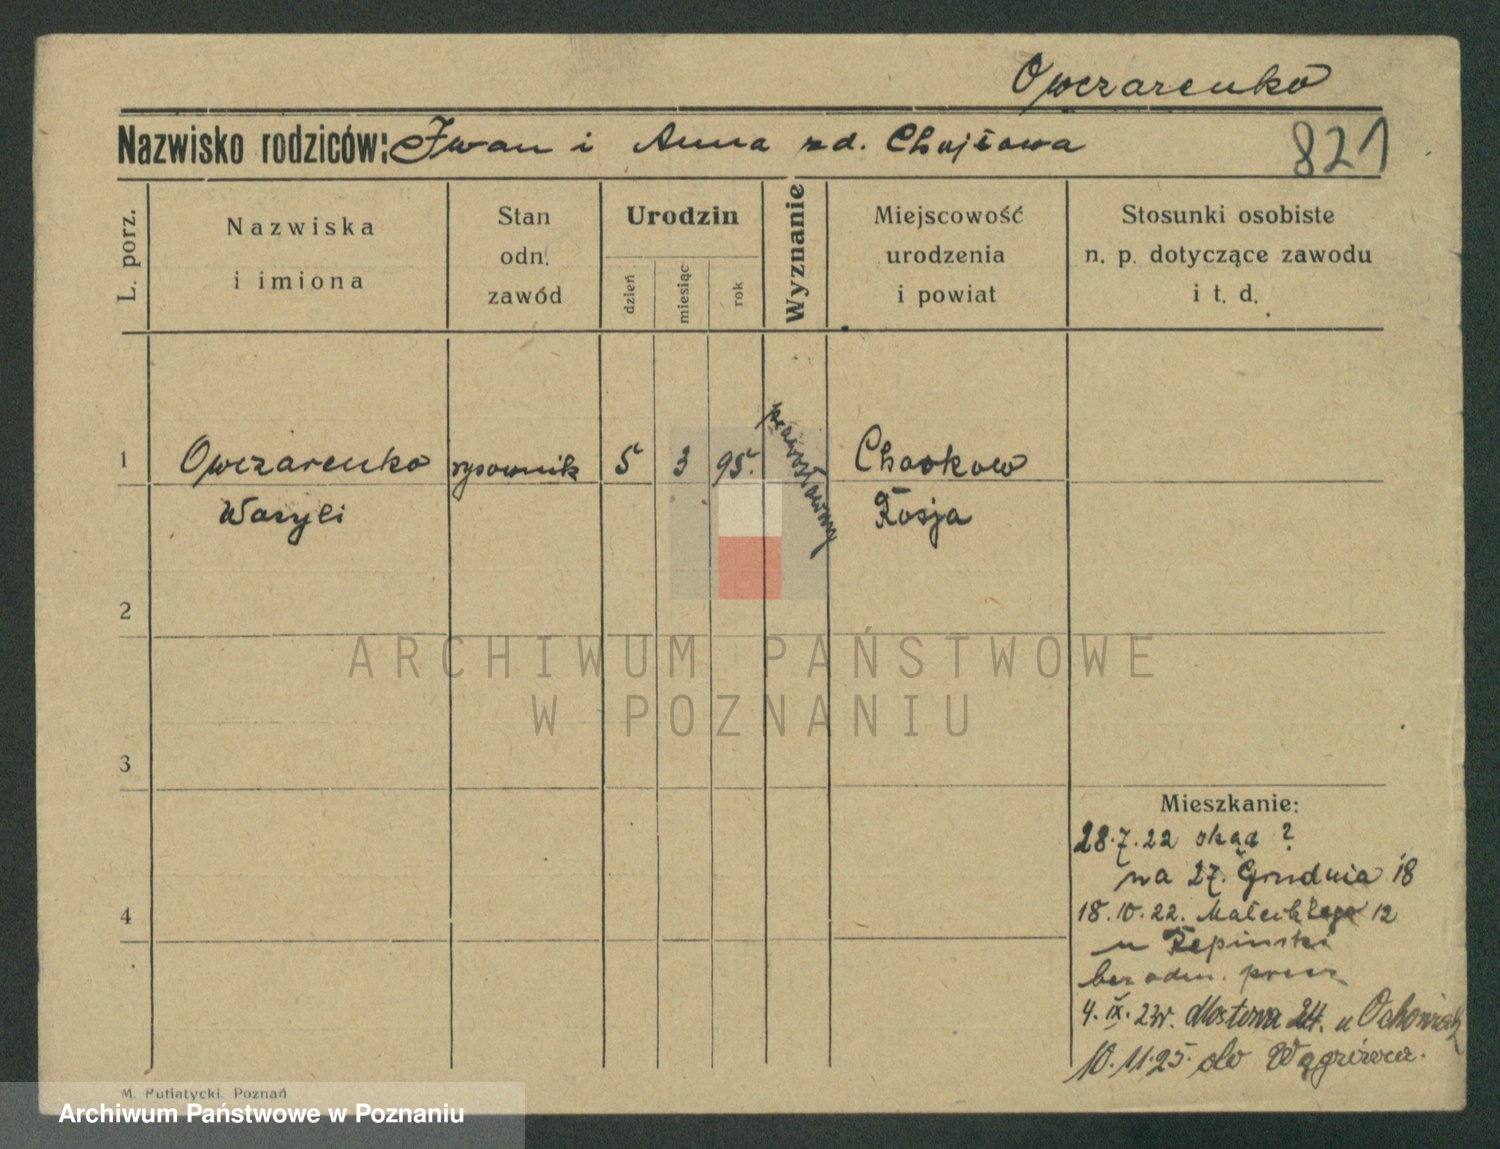 Owczarenko
Nazwisko rodziców: Iwan i Anna zd. Chojłowa
821
L. porz.
Nazwiska
i imiona
Stan
odn.
zawód
Urodzin
dzień
miesiąc
rok
Wyznanie
Miejscowość
urodzenia
i powiat
Stosunki osobiste
n. p. dotyczące zawodu
i t. d.
1 Owczarenko rysownik 5 3 95. prawosławny Charkow
Wasyli Rosja
2
ARCHIWUM PAŃSTWOWE
W POZNANIU
3
Mieszkanie:
28.7.22 skąd ?
na 27. Grudnia 18
18.10.22. Małeckiego 12
u Repinski
bez odm. przez
4
4. IX. 23r. Mostowa 24. u
10.11.25. do Wągrówca.
M. Putiatycki, Poznań
Archiwum Państwowe w Poznaniu